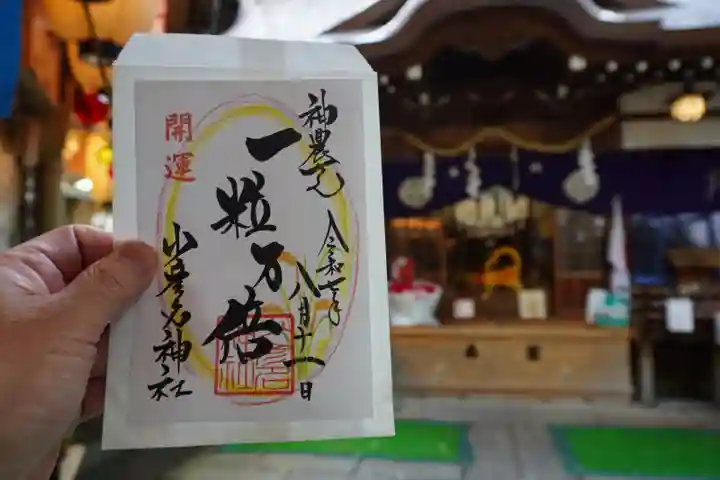 神農
令和七年
八月十一日
開運
一粒万倍
少彦名神社